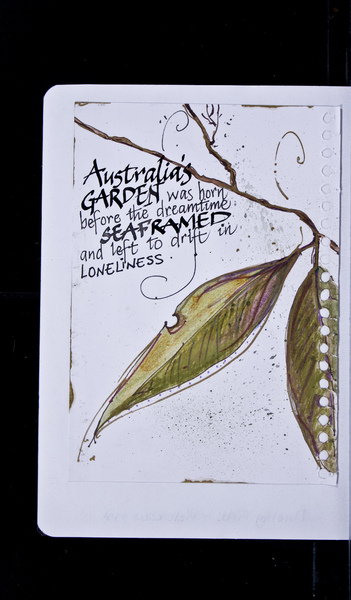 Australia's
GARDEN was born
before the dreamtime
SEAFRAMED
and left to drift in
LONELINESS.